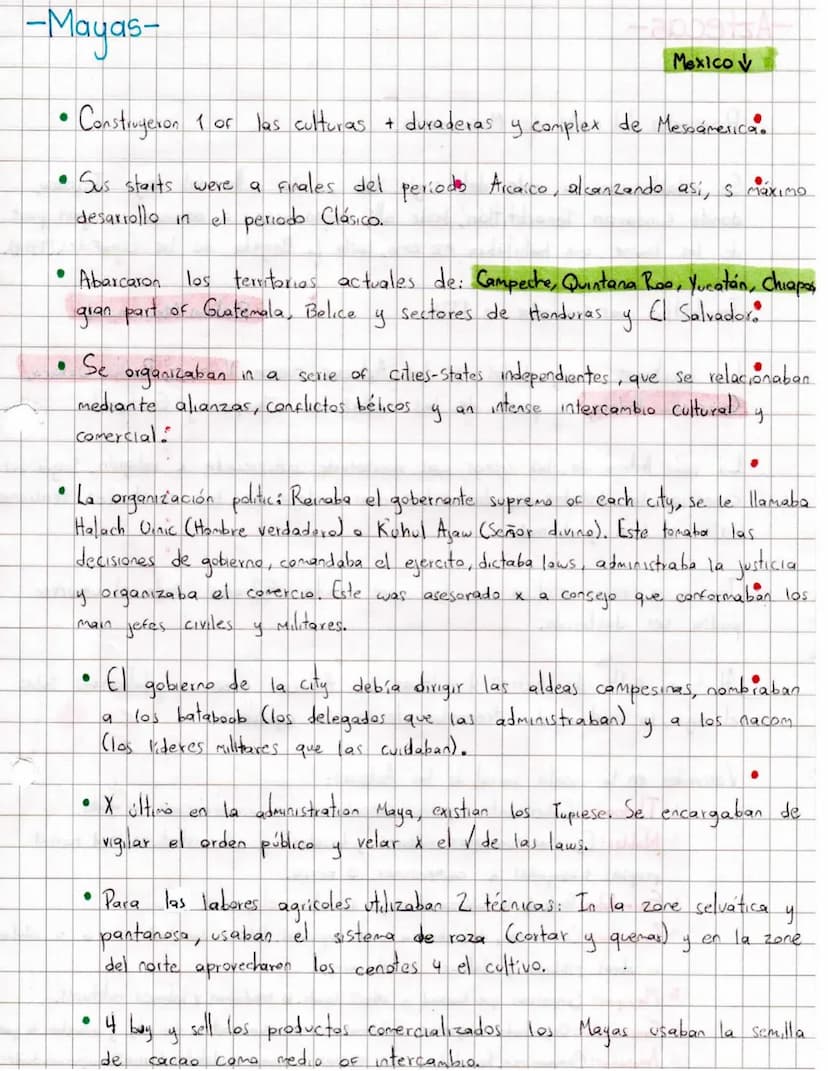 -Mayas-
Mexico ↓
• Construyeron 1 of las culturas + duraderas y complex de Mesoámerica.
• Sus starts were a finales del periodo Arcaico, alcanzando asi, s máximo
desarrollo in el periodo Clásico.
• Abarcaron los territorios actuales de: Campeche, Quintana Roo, Yucatán, Chiapas,
gran part of Guatemala, Belice y sectores de Honduras y El Salvador.
• Se organizaban in a serie of cities-States independientes, que se relacionaban
mediante alianzas, conflictos bélicos y an intense intercambio cultural y
comercial.
• La organización politic: Reinaba el gobernante supremo of each city, se le llamaba
Halach Uinic (Hombre verdadero) o Kuhul Ajaw (Señor divino). Este tomaba las
decisiones de gobierno, comandaba el ejercito, dictaba laws, administraba la justicia
y organizaba el comercio. Este was asesorado x a consejo que conformaban los
main jefes civiles y militares.
• El gobierno de la city debía dirigir las aldeas campesinas, nombraban
a los bataboob (los delegados que las administraban) y a los nacom
(los lideres militares que las cuidaban).
• X último en la administration Maya, existian los Tupiese. Se encargaban de
vigilar el orden público y velar x el √ de las laws.
• Para las labores agricoles utilizaban 2 técnicas: In la zone selvática y
pantanosa, usaban el sistema de roza (cortar y quemar) y en la zone
del norte aprovecharon los cenotes 4 el cultivo.
• 4 buy y sell los productos comercializados los Mayas usaban la semilla
de cacao como medio of intercambio.